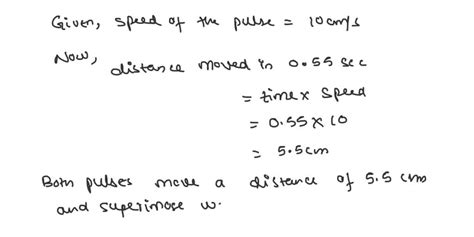 Given, speed of the pulse = 10cm/s
Now,
distance moved in 0.55 sec
= time x speed
= 0.55 x 10
= 5.5cm
Both pulses move a distance of 5.5 cm
and superimose w.